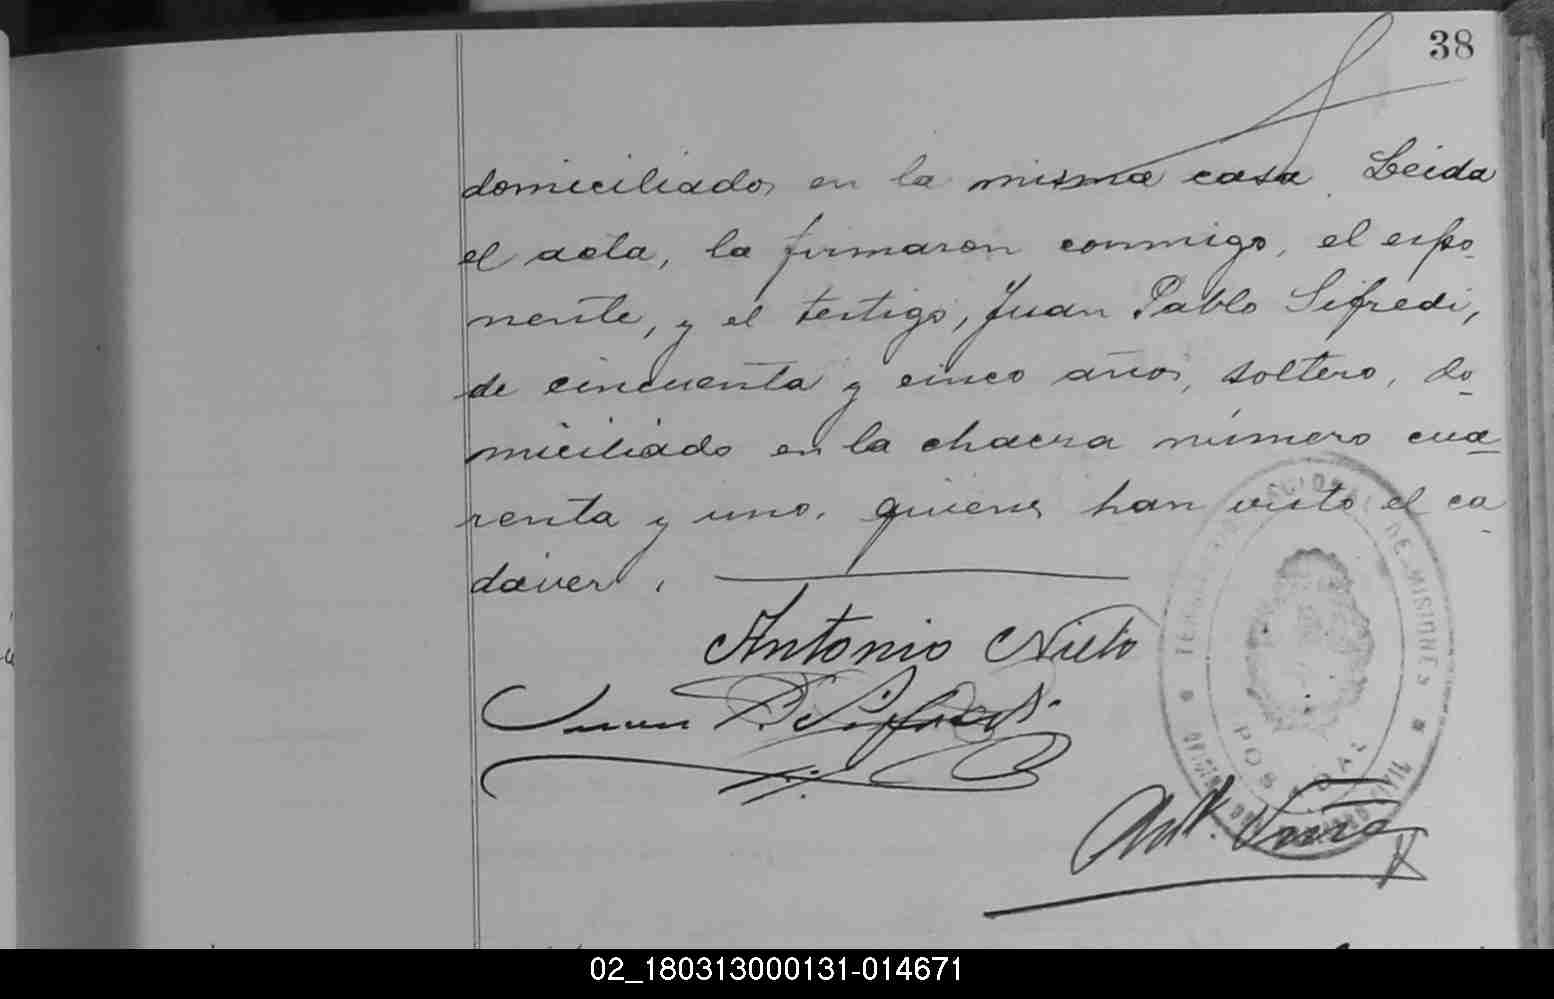 38
domiciliados en la misma casa. Leida
el acta, la firmaron conmigo, el expo-
nente, y el testigo, Juan Pablo Sifredi,
de cincuenta y cinco años, soltero, do-
miciliado en la chacra número cua-
renta y uno, quienes han visto el ca-
dáver.
Antonio Nieto
Juan P. Sifredi
NACIONAL DE MISIONES
POSADAS
02_180313000131-014671